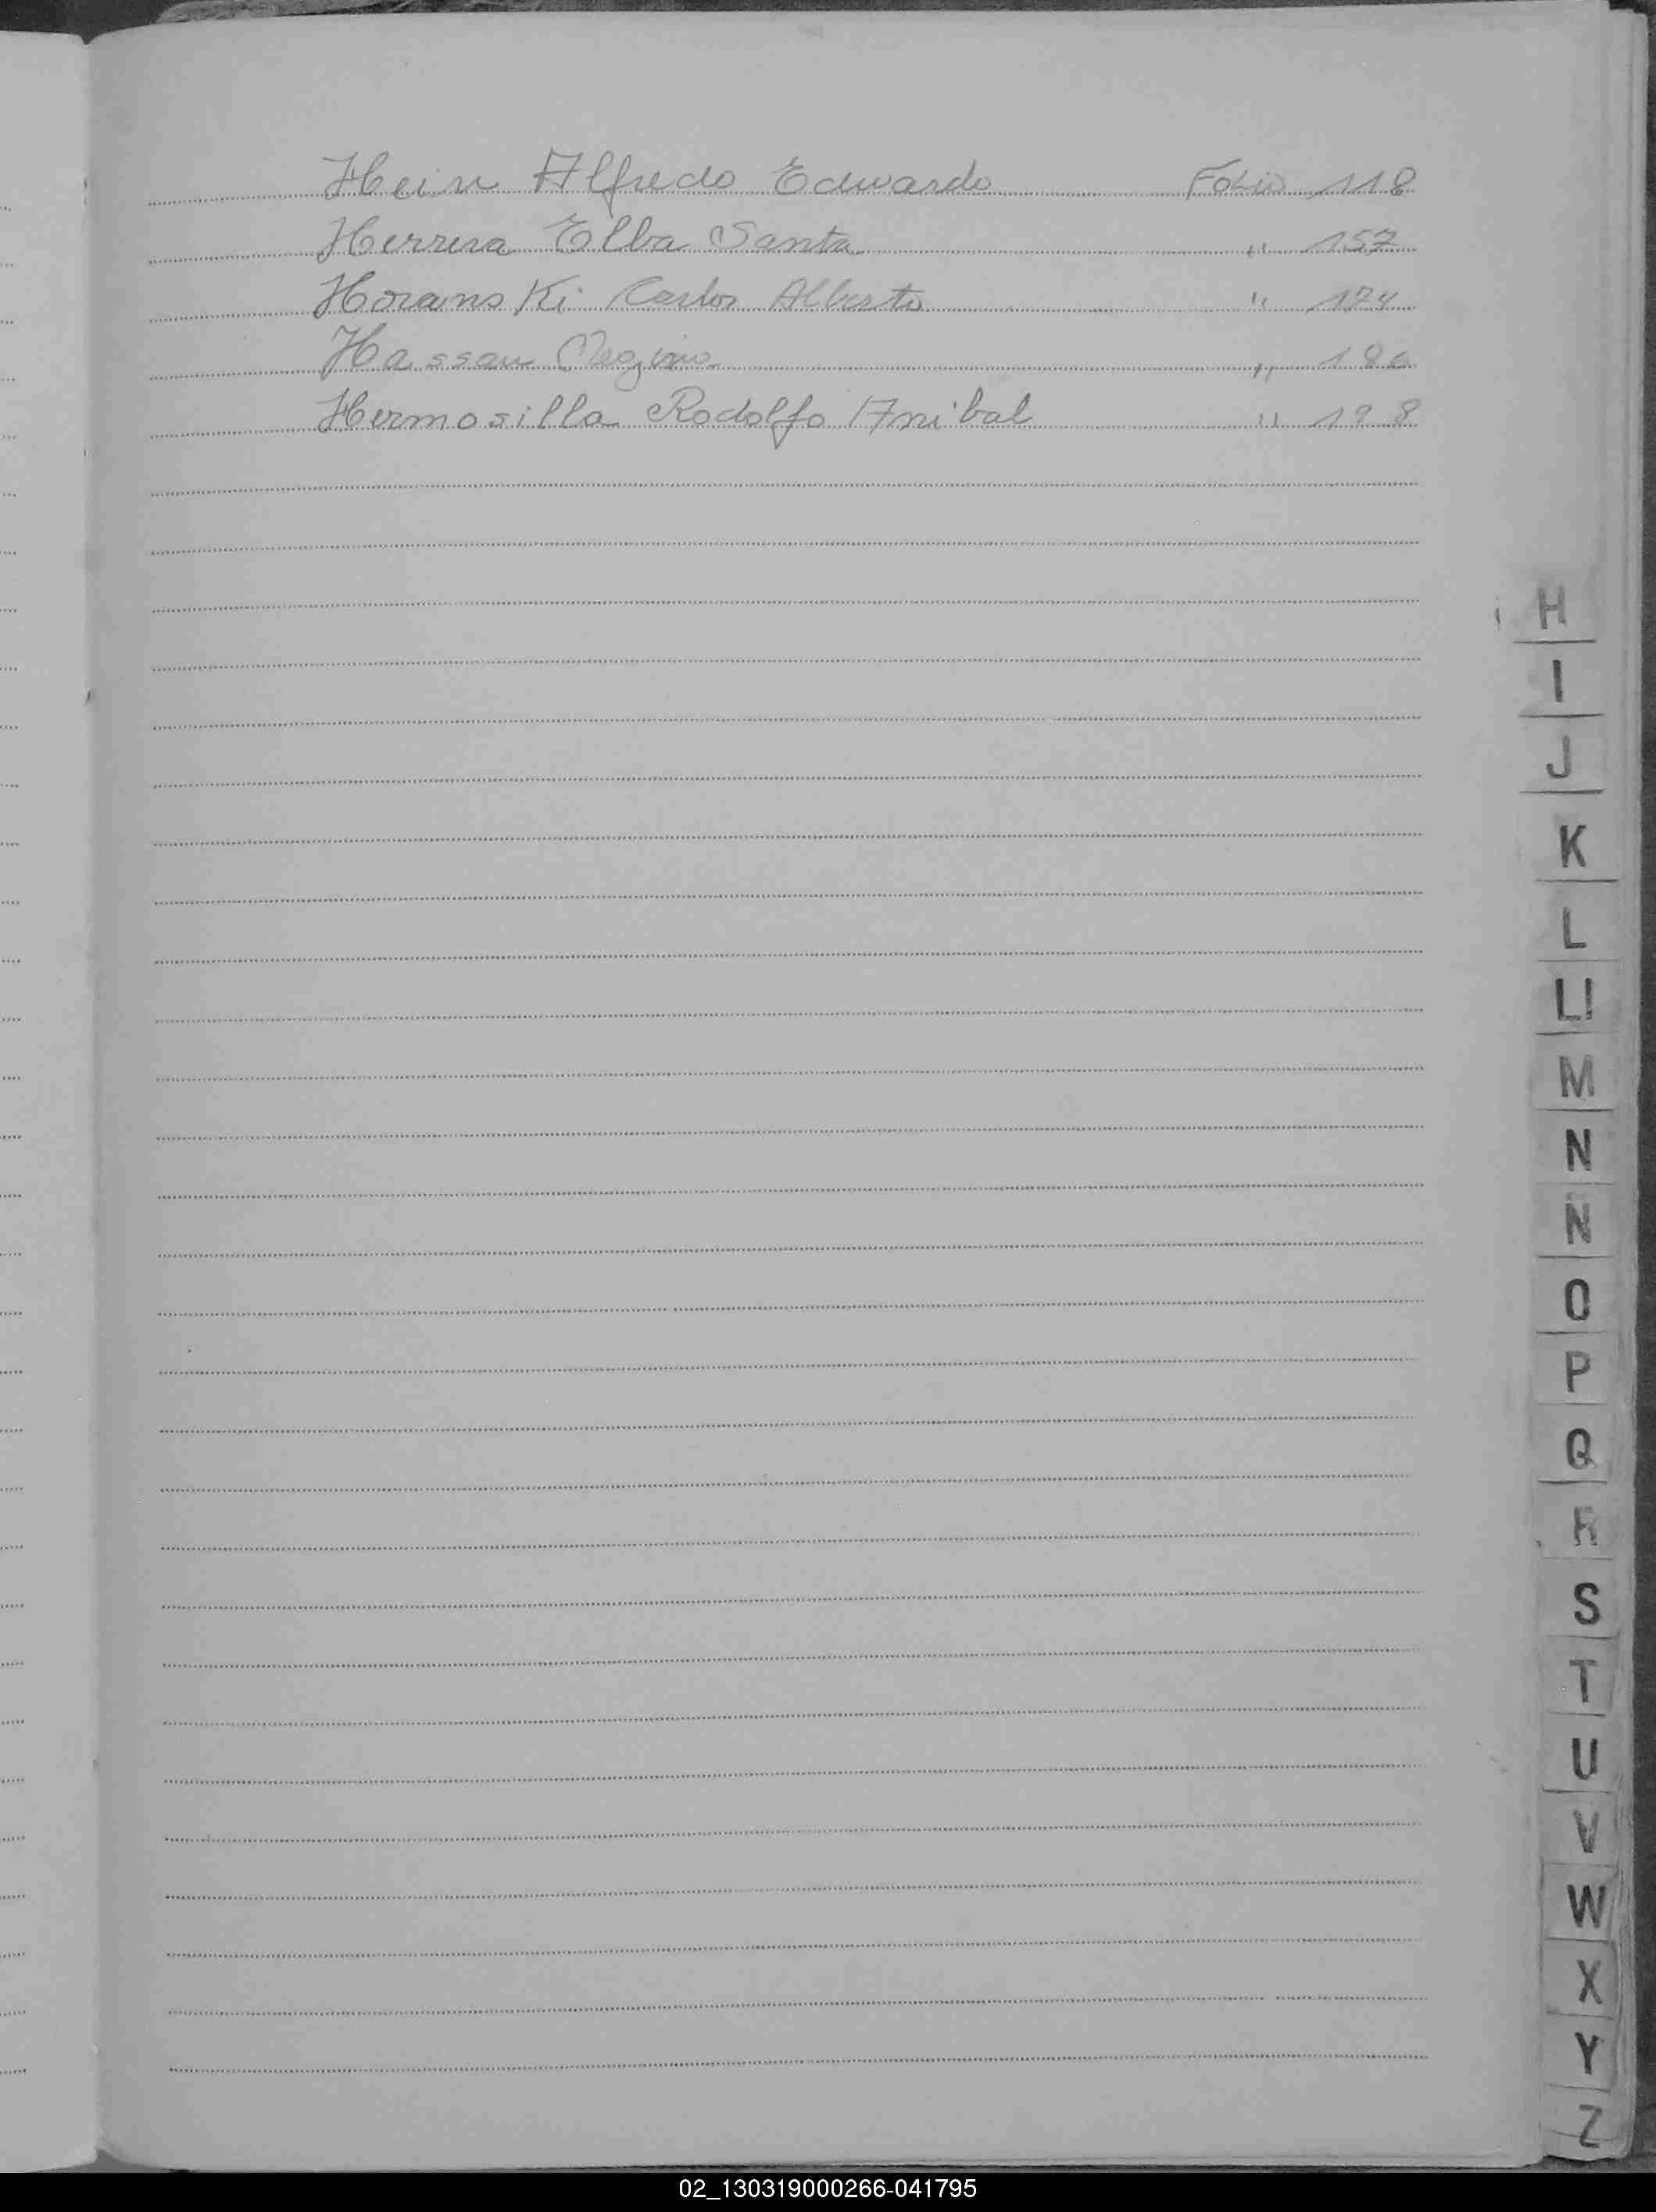 Hein Alfredo Eduardo Folio 118
Herrera Elba Santa " 157
Horanski Carlos Alberto " 174
Hassan " 186
Hermosilla Rodolfo Anibal " 198
H
I
J
K
L
Ll
M
N
Ñ
O
P
Q
R
S
T
U
V
W
X
Y
Z
02_130319000266-041795